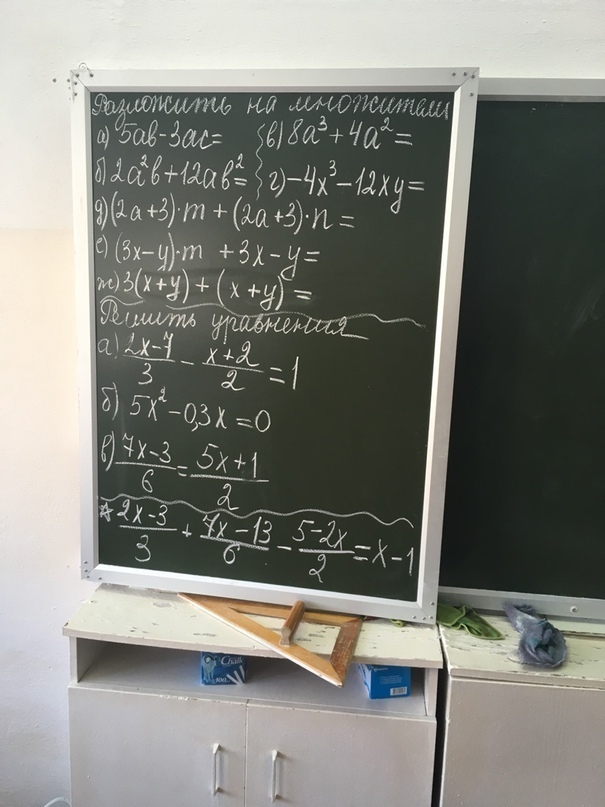 Разложить на множители
а) 5ab-3ac= в) 8a³+4a²=
б) 2a²b+12ab²= г) -4x³-12xy=
д) (2a+3)·m+(2a+3)·n=
е) (3x-y)·m +3x-y=
ж) 3(x+y)+(x+y)=
Решить уравнения
а) (2x-7)/3 - (x+2)/2 = 1
б) 5x²-0,3x=0
в) (7x-3)/6 = (5x+1)/2
* (2x-3)/3 + (7x-13)/6 - (5-2x)/2 = x-1
Chalk